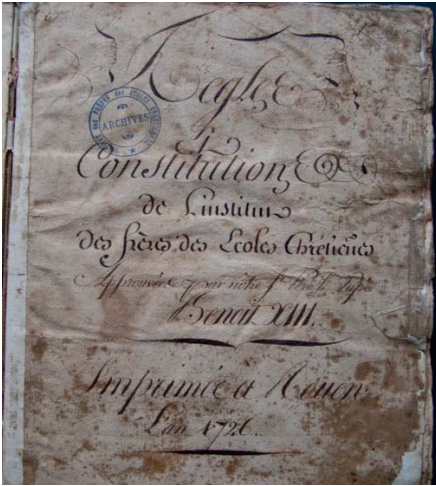 Regles
&
Constitutions
de L'institut
des frères des Ecoles Chrétienes
Approuvées par nôtre St. Père le Pape
Benoit XIII.
Imprimée a Rouen
L'an 1726.
ARCHIVES